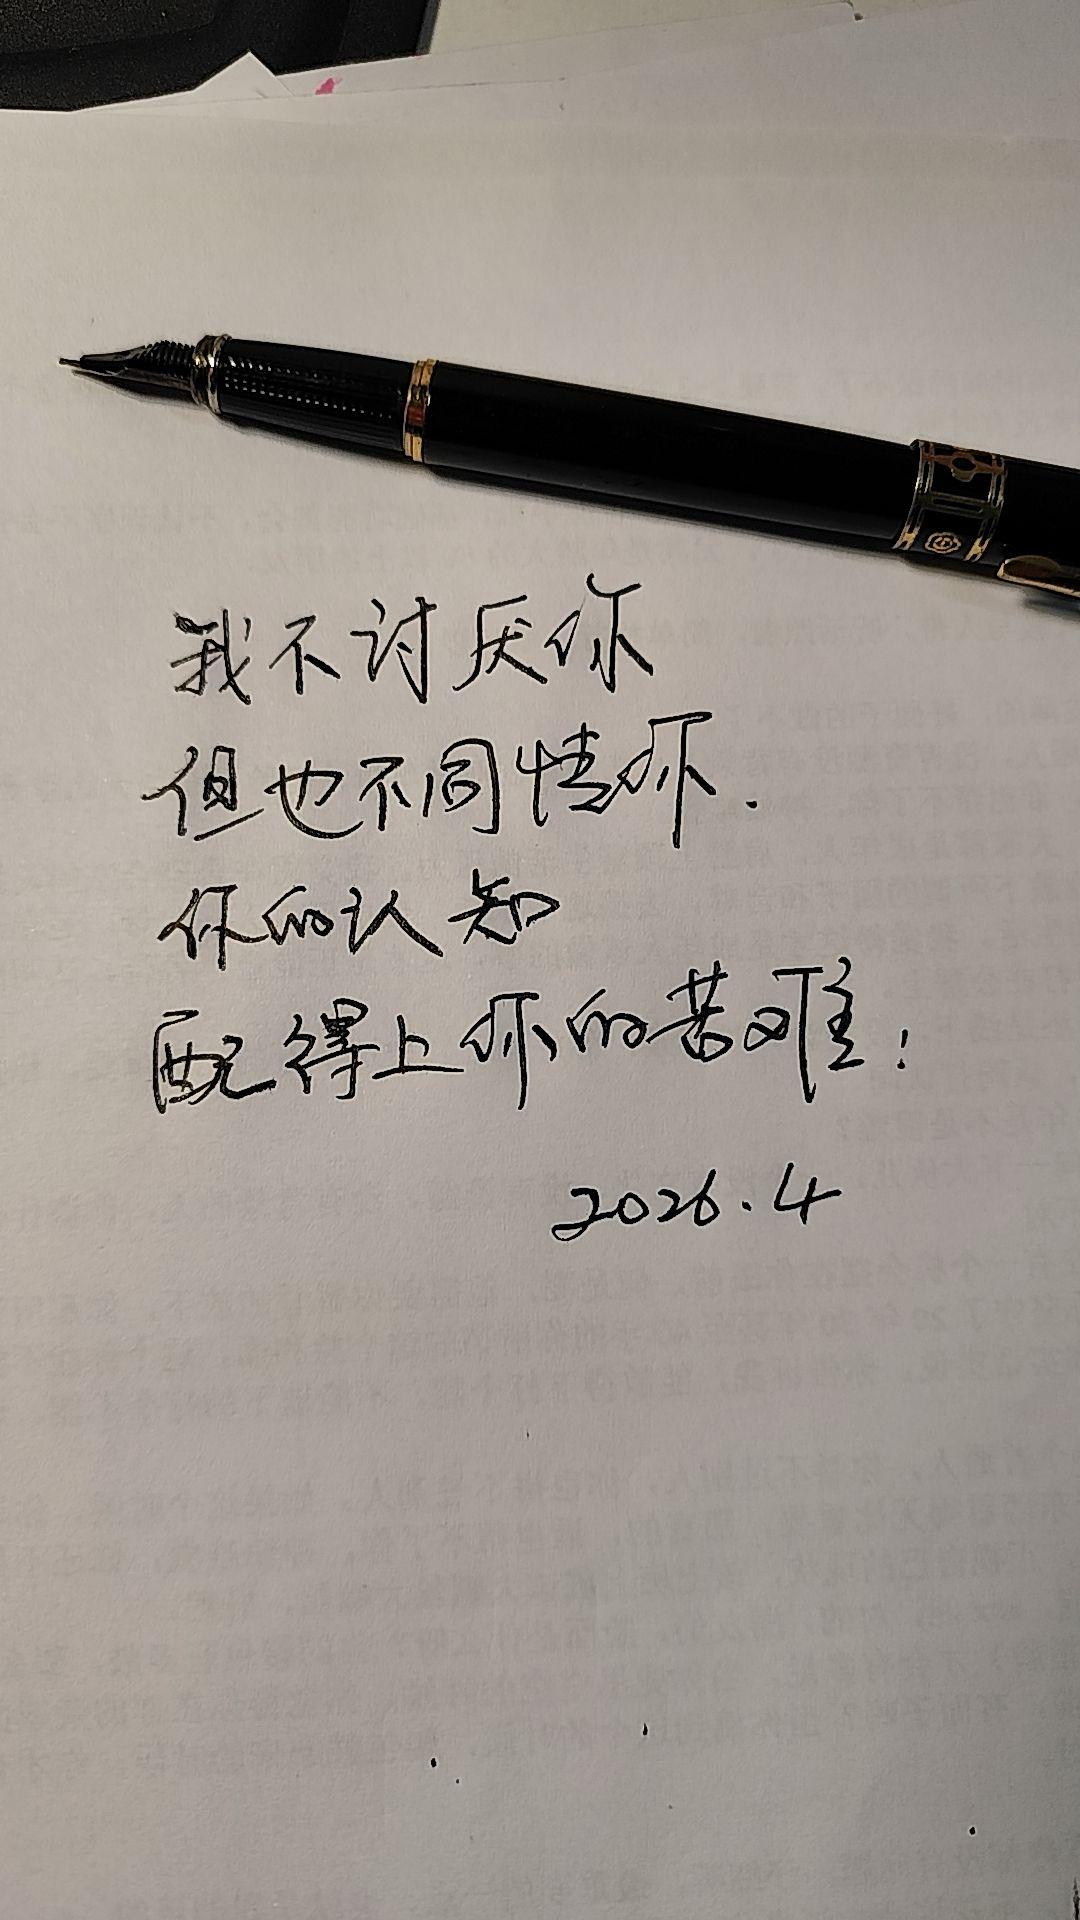 我不讨厌你
但也不同情你.
你的认知
配得上你的苦难!
2026.4